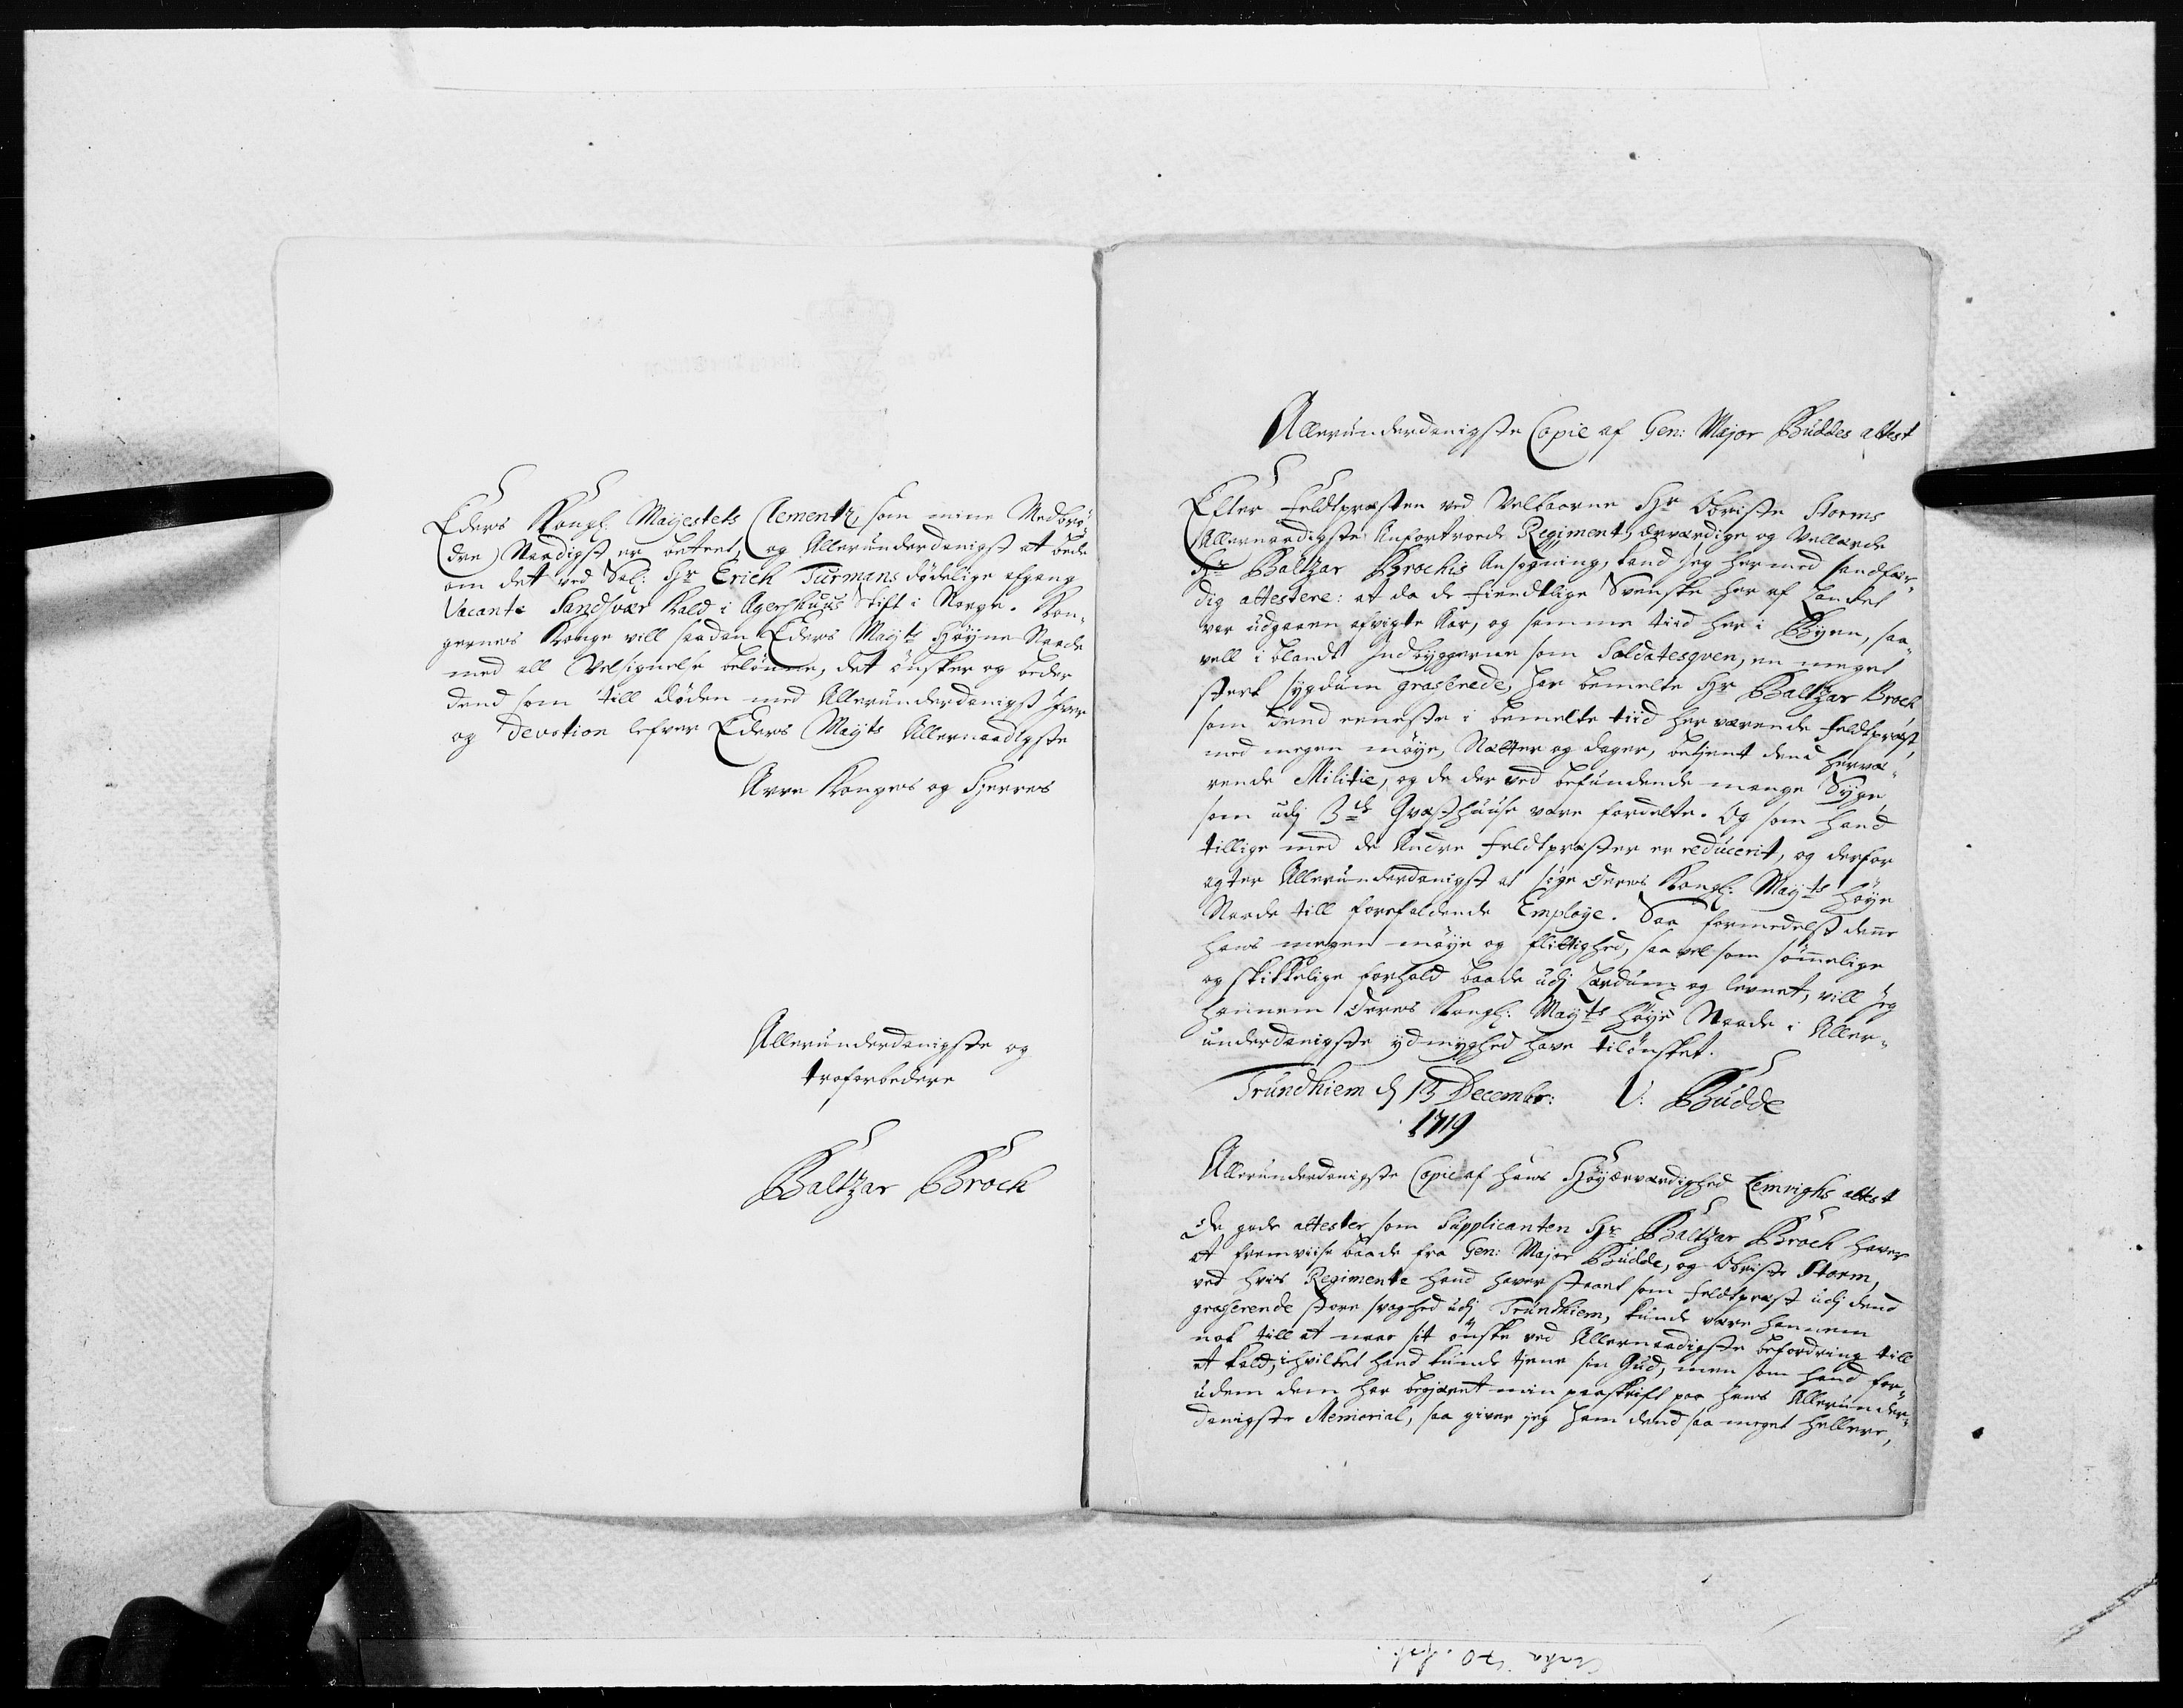 Eders Kongl: Mayestets Clementz, som mine Medbrö-
dre Naadigst er beteet, og Allerunderdanigst at bede
om det ved Sal: Hr Erich Turmans dödelige afgang
Vacante Sandsvær Kald i Agershuus Stift i Norge. Kon-
gernes Konge vill saadan Eders Mayts Höyne Naade
med all Velsignelse belönne, det önsker og beder
dend som till döden med Allerunderdanigst
og Devotion lefver Eders Mayts Allernaadigste
Arve Konges og Herres
Allerunderdanigste og
troforbedere
Baltzar Brock
Allerunderdanigste Copie af Gen: Major Buddes attest
Efter Feldtpræsten ved Velbaarne Hr Obriste Storms
Allernaadigste Anfortroede Regiment, ærværdige og Vellærde
Hr Baltzar Brochis Ansögning, kand jeg hermed sandfær-
dig attestere: at da de fiendtlige Svenske her af Landet
var udgaaen afvigte Aar, og samme tiid her i Byen, saa-
vell i blandt Indbyggerne som Soldatesqven, en meget
sterk sygdum grasserede, har bemelte Hr Baltzar Brock
som dend eeneste i bemelte tiid her værende feldtpræst,
med megen möye, Nætter og dager, betient dend hervæ-
rende Militie, og de der ved befundende mange Syge
som udj 3de Qvæsthuuse vare fordelte. Og som hand
tillige med de Andre feldtpræster er reducerit, og derfor
agter Allerunderdanigst at söge Deres Kongl: Mayts höye
Naade till forefaldende Employe. Saa formedelst denne
hans megen möye og flittighed, saa vel som sömmelige
og skikkelige forhold baade udj Lærdum og levnet, vill jeg
hannem Deres Kongl: Mayts höye Naade i Aller-
underdanigste ydmyghed have tilönsket.
Trundhiem d 13 Decembr: V: Budde
1719
Allerunderdanigste Copie af hans Höyærværdighed Lemvighs attest
De gode attester som Supplicanten Hr Baltzar Brock haver
at fremviise baade fra Gen: Major Budde, og Obriste Storm,
ved hvis Regimente hand haver staaet som feldtpræst udj dend
grasserende store svaghed udj Trundhiem, kunde være hannem
nok till at naae sit önske ved Allernaadigste befordring till
et kald, i hvilket hand kunde tjene sin Gud, men som hand for-
uden dem har begjæret min paaskrift paa hans Allerunder-
danigste Memorial, saa giver jeg ham dend saa meget hellere,